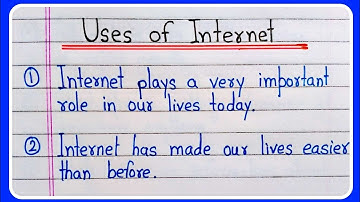 Uses of Internet
① Internet plays a very important
role in our lives today.
② Internet has made our lives easier
than before.